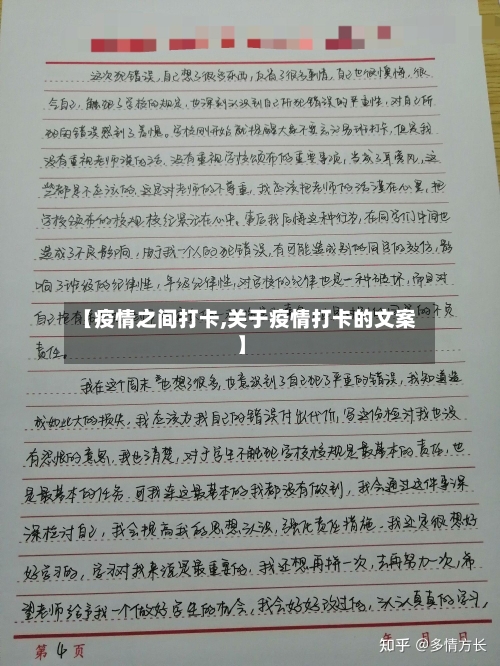 这次犯错误,自己想了很多东西,反省了很多事情,自己也很懊悔,很
气自己,触犯了学校的规定,也深刻认识到自己所犯错误的严重性,对自己所
犯的错误感到了羞愧。学校刚开始就提醒大家不要忘记
没有重视老师讲的话,没有重视学校颁布的重要事项,当成了耳旁风,这
些都是不应该的,这是对老师的不尊重。我应该把老师的话谨在心里,把
学校颁布的校规校纪紧记在心中。事后我后悔这种行为,在同学们中间也
造成了不良影响,由于我一个人的犯错误,有可能造成别的同学的效仿,影
响了班级的纪律性,年级纪律性,对学校的纪律也是一种破坏,而且对
自己抱有
【疫情之间打卡,关于疫情打卡的文案
】
责任。
我在这个周末也想了很多,也意识到了自己犯了严重的错误,我知道造
成如此大的损失,我应该为我自己的错误付出代价,写这份检讨我也没
有怨恨的意思,我也了清楚,对于学生不触犯学校校规是最基本的责任,也
是最基本的任务,可我连这最基本的我都没有做到,我会通过这件事深
深检讨自己,我会提高我的思想认识,强化责任措施。我还是很想好
好学习的,学习对我来说是最重要的,我还想再拼一次,去再努力一次,希
望老师给予我一个做好学生的机会,我会好好改过的,认认真真的学习,
第 4 页
年 月 日
知乎 @多情方长